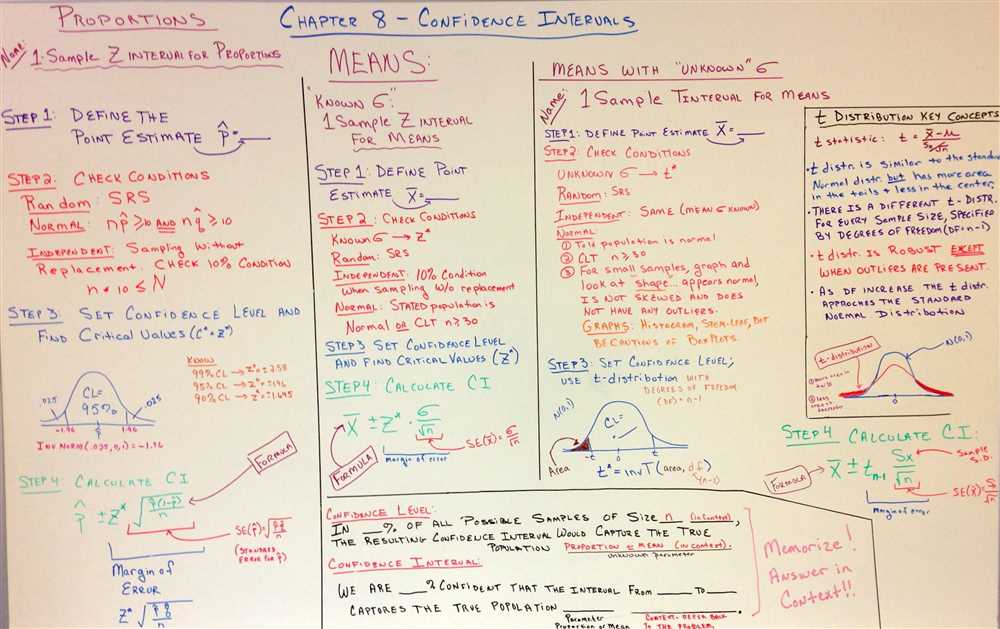 PROPORTIONS
CHAPTER 8 – CONFIDENCE INTERVALS
Name:
1-Sample Z INTERVAL FOR PROPORTIONS
STEP 1: DEFINE THE
POINT ESTIMATE p̂ = ___
STEP 2: CHECK CONDITIONS
Random: SRS
NORMAL: np̂ ≥ 10 AND nq̂ ≥ 10
INDEPENDENT: Sampling Without
Replacement. CHECK 10% CONDITION
n * 10 ≤ N
STEP 3: SET CONFIDENCE LEVEL AND
FIND CRITICAL VALUES (C* = Z*)
KNOWN
99% CL → Z* = ±2.58
95% CL → Z* = ±1.96
90% CL → Z* = ±1.645
CL =
95%
.025
.025
-1.96 0 1.96
INV NORM(.025,0,1) = -1.96
FORMULA
STEP 4: CALCULATE CI
p̂ ± Z* √(p̂(1-p̂)/n)
SE(p̂) = √(p̂q̂/n)
(STANDARD
ERROR FOR p̂)
Margin of
ERROR
Z* √(p̂q̂/n)
MEANS:
"KNOWN σ":
1 Sample Z INTERVAL
FOR MEANS
STEP 1: DEFINE POINT
ESTIMATE x̄ = ___
STEP 2: CHECK CONDITIONS
KNOWN σ → Z*
Random: SRS
INDEPENDENT: 10% Condition
when sampling w/o replacement
NORMAL: STATED population is
Normal OR CLT n ≥ 30
STEP 3 SET CONFIDENCE LEVEL
AND FIND CRITICAL VALUES (Z*)
STEP 4 CALCULATE CI
x̄ ± Z* · σ/√n
SE(x̄) = σ/√n
Margin of error
FORMULA
MEANS WITH "UNKNOWN" σ
Name:
1 Sample T INTERVAL FOR MEANS
STEP 1: DEFINE POINT ESTIMATE x̄ = ___
STEP 2: CHECK CONDITIONS
UNKNOWN σ → t*
RANDOM: SRS
INDEPENDENT: SAME (MEAN σ KNOWN)
NORMAL:
① Told population is normal
② CLT n ≥ 30
③ For small samples, graph and
look at "shape"... appears normal,
IS NOT SKEWED AND DOES
NOT HAVE ANY OUTLIERS.
GRAPHS: HISTOGRAM, STEM-LEAF, DOT
BE CAUTIOUS OF BOXPLOTS.
STEP 3: SET CONFIDENCE LEVEL;
USE t-distribution WITH
DEGREES OF FREEDOM
(DF) = n-1
N(0,1)
CL =
Area
-t 0 t
t* = inv T (area, df)
n-1
t DISTRIBUTION KEY CONCEPTS
t statistic: t = (x̄ - μ)/(Sx/√n)
• t distr. is similar to the standard
Normal distr. but has more area
in the tails + less in the center.
• THERE IS A DIFFERENT t-DISTR.
FOR EVERY SAMPLE SIZE, SPECIFIED
BY DEGREES OF FREEDOM (DF = n-1)
• t distr. IS ROBUST EXCEPT
WHEN OUTLIERS ARE PRESENT.
• AS DF INCREASE THE t distr.
APPROACHES THE STANDARD
NORMAL DISTRIBUTION
t-distribution
N(0,1)
0
STEP 4 CALCULATE CI:
x̄ ± t n-1 Sx/√n
Sample
S.D.
FORMULA
SE(x̄) = S/√n
Margin of error
CONFIDENCE LEVEL:
IN ___% OF ALL POSSIBLE SAMPLES OF SIZE n (in Context),
THE RESULTING CONFIDENCE INTERVAL WOULD CAPTURE THE TRUE
POPULATION PROPORTION or MEAN (in context).
unknown parameter
CONFIDENCE INTERVAL:
WE ARE ___% CONFIDENT THAT THE INTERVAL FROM ___ TO ___
CAPTURES THE TRUE POPULATION ___ ___.
Parameter
Proportion or Mean
CONTEXT-REFER BACK
TO THE PROBLEM.
Memorize!
Answer in
Context!!